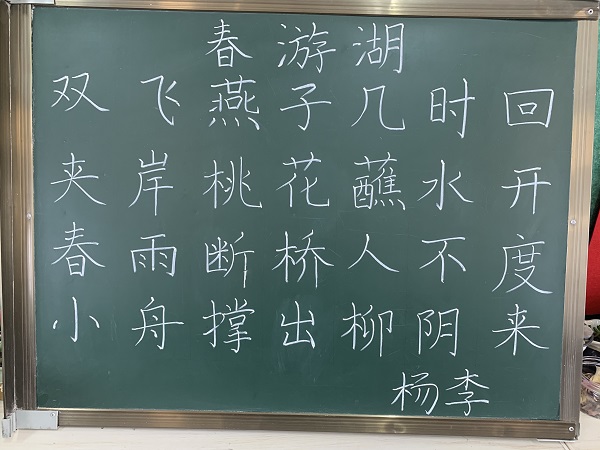 春游湖
双飞燕子几时回
夹岸桃花蘸水开
春雨断桥人不度
小舟撑出柳阴来
杨李